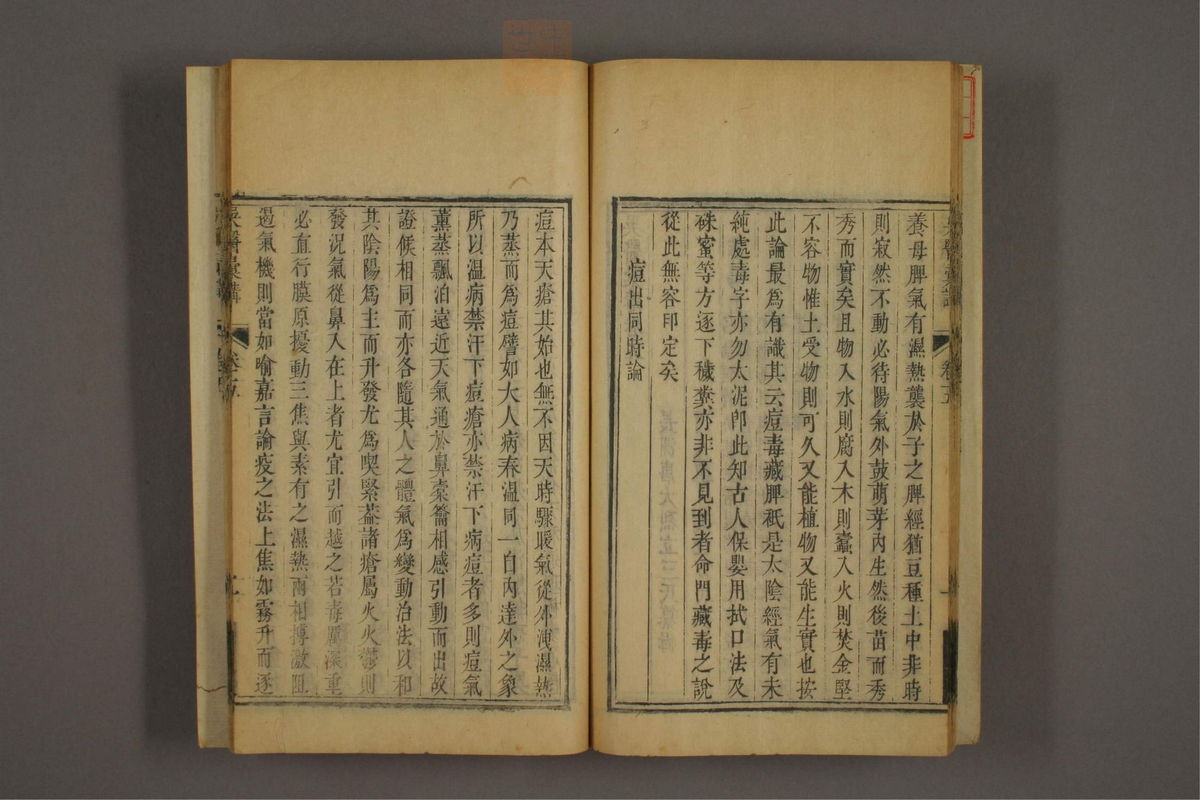 養母脾氣有濕熱襲於子之脾經猶豆種土中非時
則寂然不動必待陽氣外鼓萌芽內生然後苗而秀
秀而實矣且物入水則腐入木則蠹入火則焚金堅
不容物惟土受物則可久又能植物又能生實也按
此論最爲有識其云痘毒藏脾秖是太陰經氣有未
純處毒字亦勿太泥卽此知古人保嬰用拭口法及
硃蜜等方逐下穢糞亦非不見到者命門藏毒之說
從此無容印定矣
痘出同時論
痘本天瘡其始也無不因天時驟暖氣從外洩濕熱
乃蒸而爲痘譬如大人病春溫同一自內達外之象
所以溫病禁汗下痘瘡亦禁汗下病痘者多則痘氣
薰蒸飄泊遠近天氣通於鼻橐籥相感引動而出故
證候相同而亦各隨其人之體氣爲變動治法以和
其陰陽爲主而升發尤爲喫緊葢諸瘡屬火火鬱則
發況氣從鼻入在上者尤宜引而越之若毒深重
必直行膜原擾動三焦與素有之濕熱兩相搏激阻
遏氣機則當如喻嘉言論疫之法上焦如霧升而逐
吳醫彙講
卷五